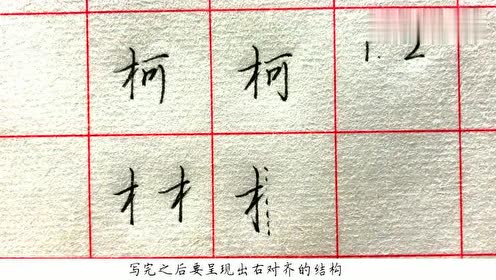 柯 柯 1. 2
木 木 木
写完之后要呈现出右对齐的结构